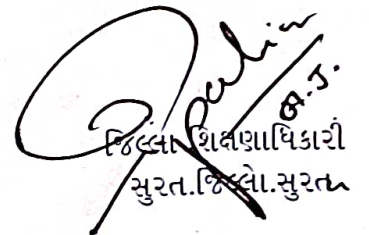 જિલ્લા શિક્ષણાધિકારી
સુરત.જિલ્લો.સુરત